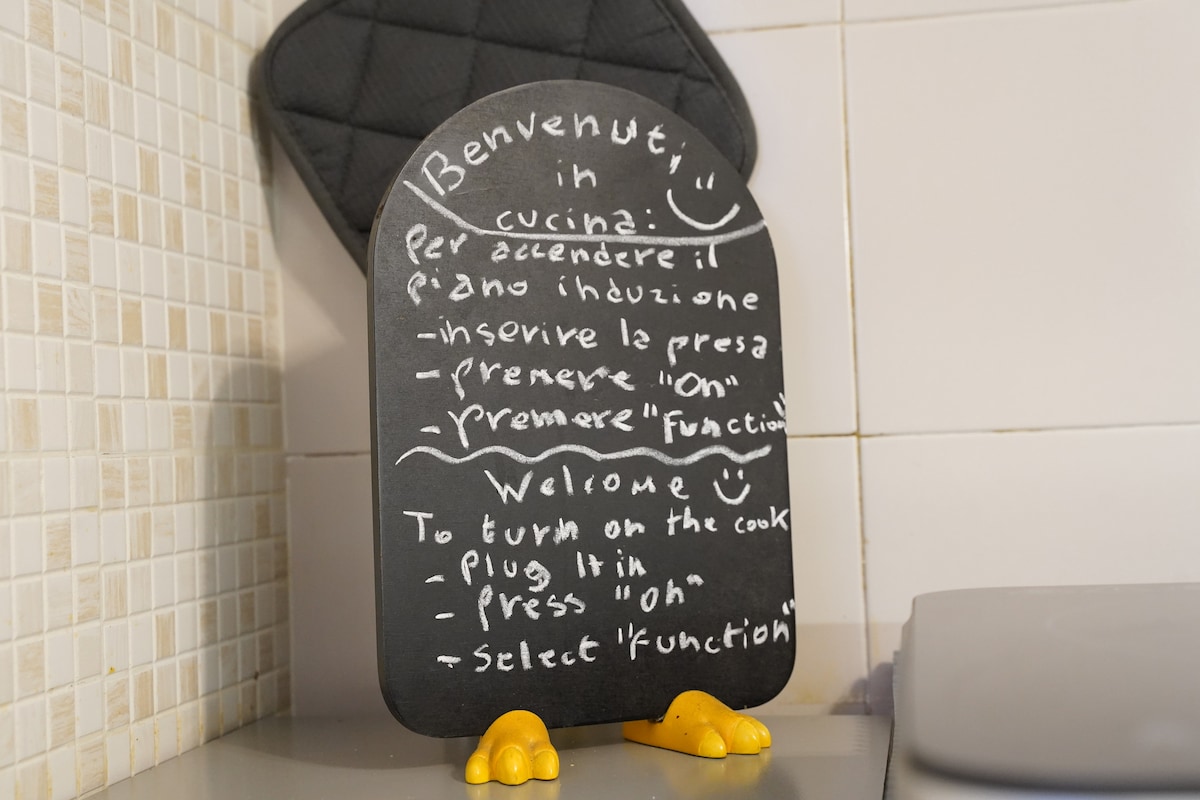 Benvenuti
in
cucina:
per accendere il
piano induzione
- inserire la presa
- premere "On"
- premere "Function"
Welcome
To turn on the cook
- Plug It in
- Press "On"
- Select "Function"